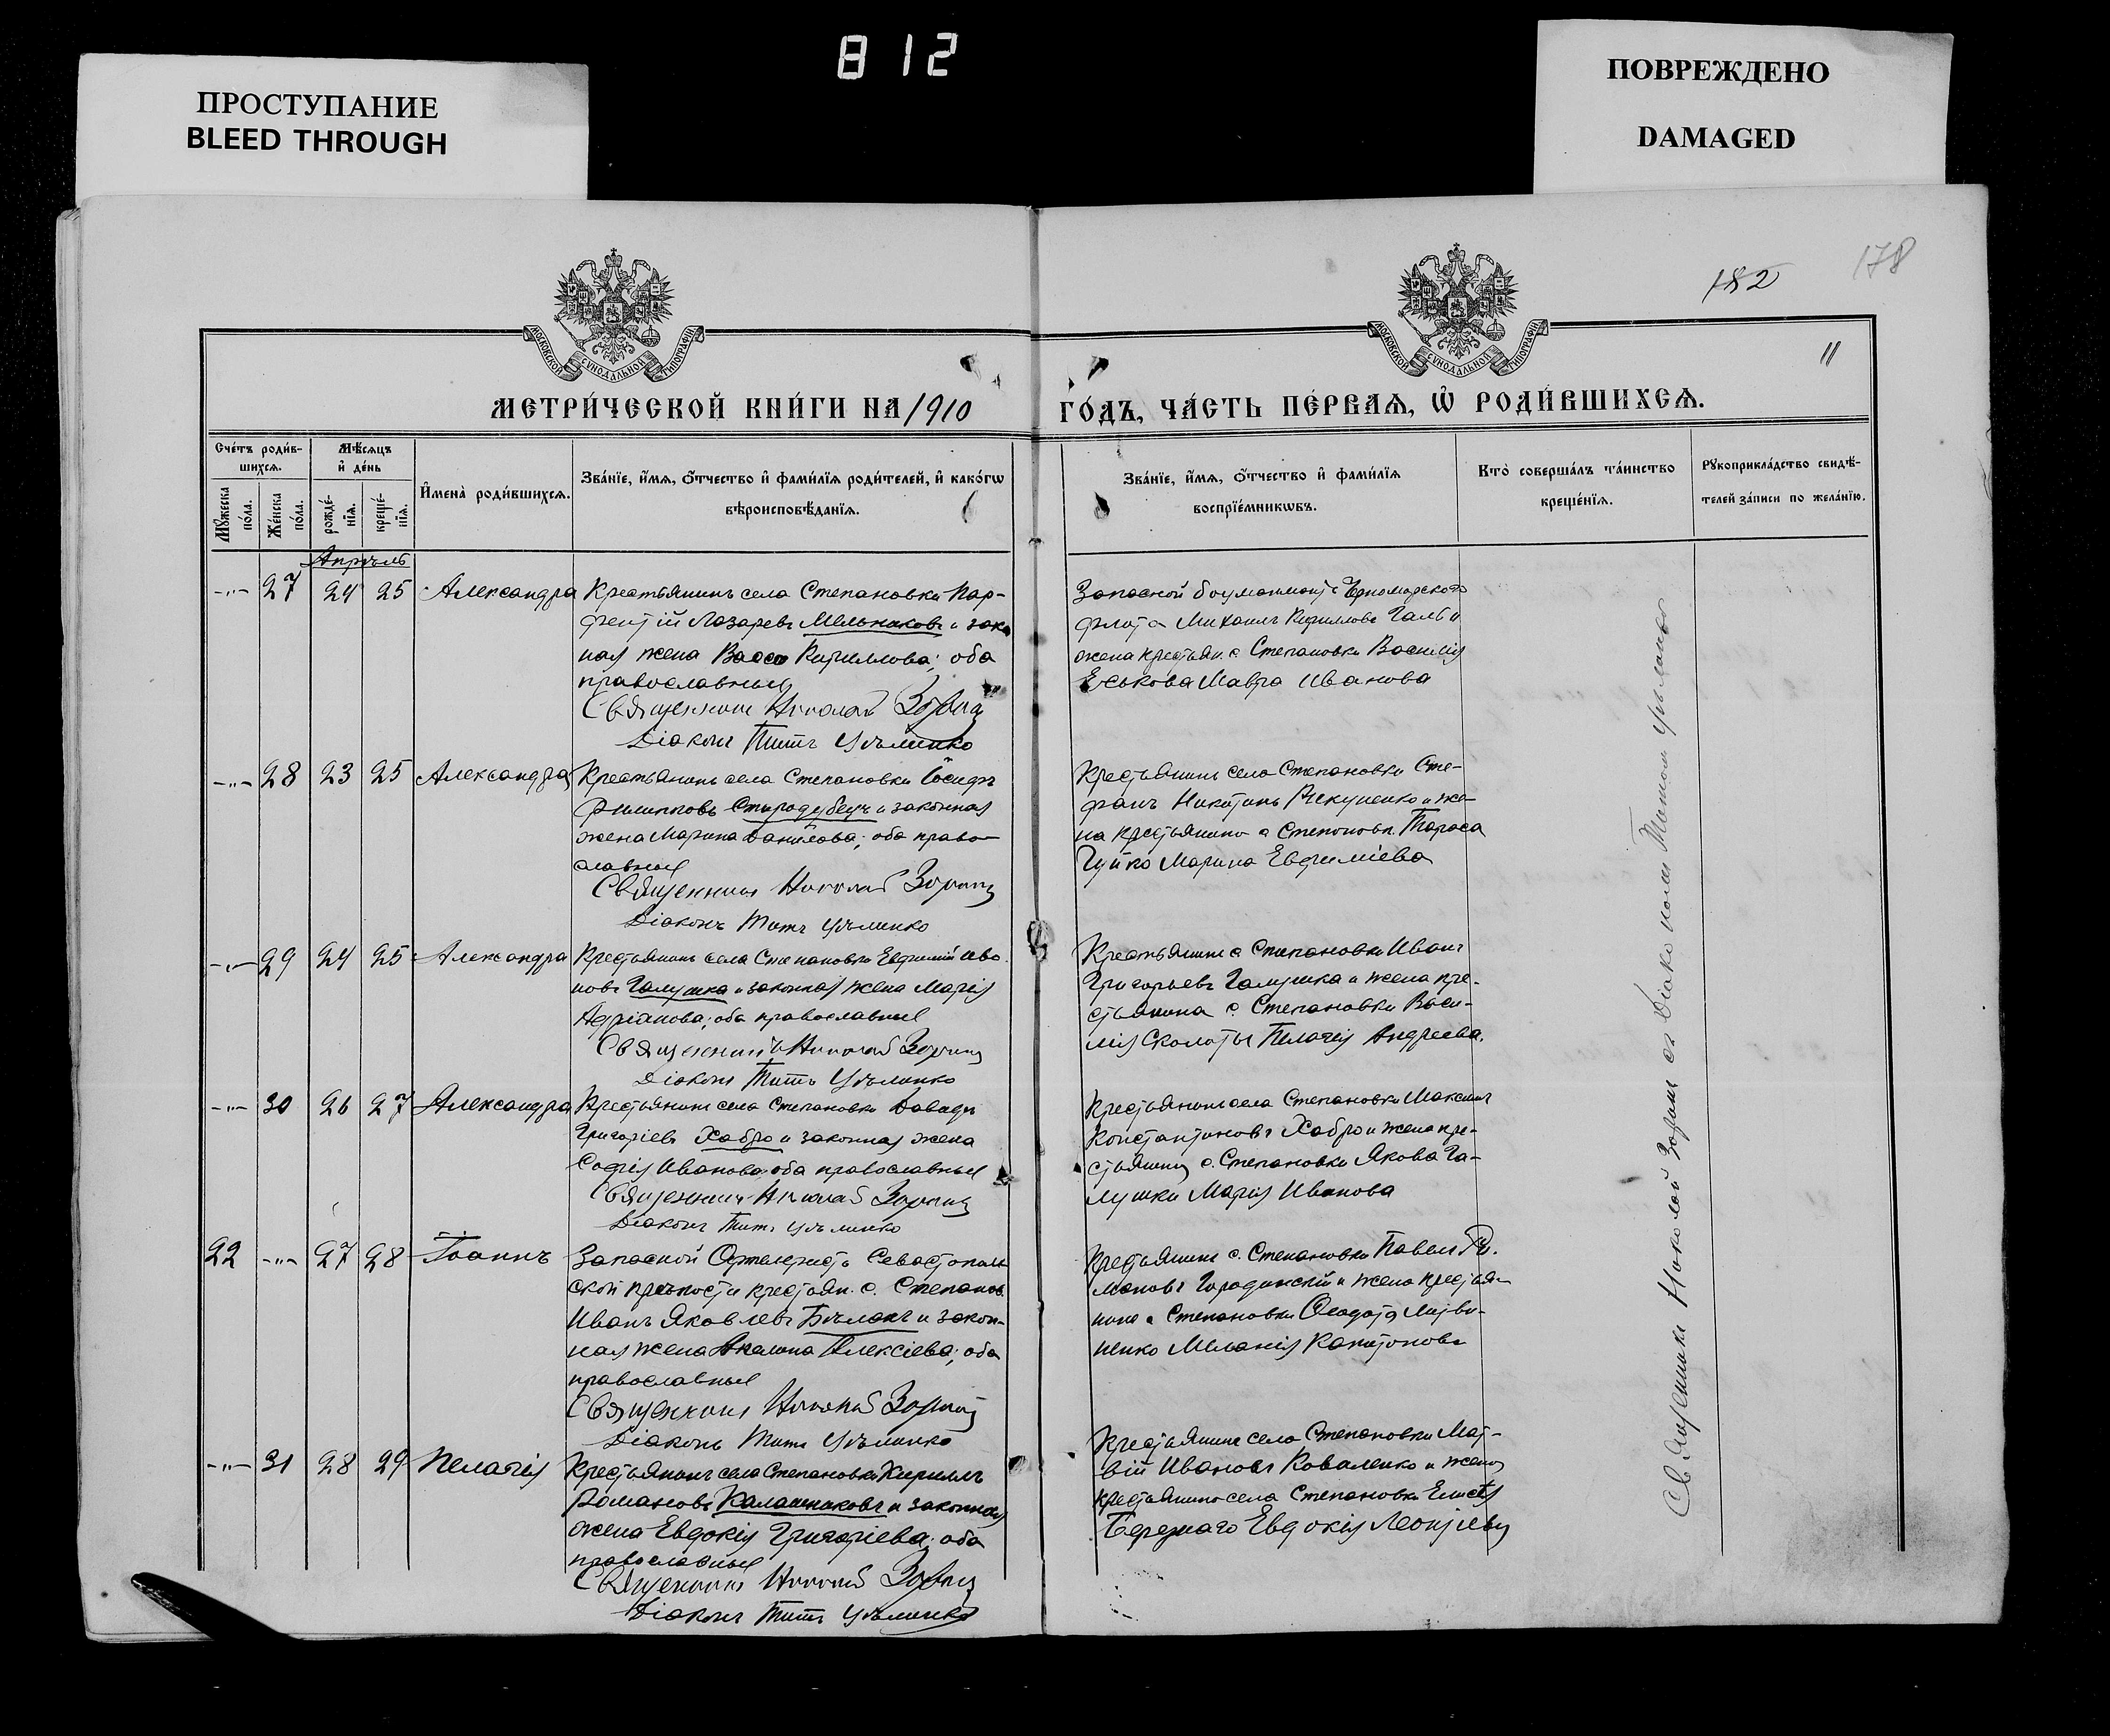 812
ПРОСТУПАНИЕ
BLEED THROUGH
ПОВРЕЖДЕНО
DAMAGED
178
182
11
МОСКОВСКОЙ СѴНОДАЛЬНОЙ ТИПОГРАФІИ
МОСКОВСКОЙ СѴНОДАЛЬНОЙ ТИПОГРАФІИ
МЕТРИ́ЧЕСКОЙ КНИ́ГИ НА 1910
ГО́ДЪ, ЧА́СТЬ ПЕ́РВАѦ, Ѽ РОДИ́ВШИХСѦ.
Сче́тъ роди́в-
шихсѧ.
Мѣ́сѧцъ
и҆ де́нь
Мꙋ́жеска
по́ла.
Же́нска
по́ла.
рожде́-
нїѧ.
креще́-
нїѧ.
И҆мена̀ роди́вшихсѧ.
Зва́нїе, и҆́мѧ, ѻ҆́тчество и҆ фами́лїѧ роди́телей, и҆ како́гѡ
вѣроисповѣ́данїѧ.
Зва́нїе, и҆́мѧ, ѻ҆́тчество и҆ фами́лїѧ
воспрїе́мникѡвъ.
Кто̀ соверша́лъ та́инство
креще́нїѧ.
Рꙋкоприкла́дство свидѣ́-
телей за́писи по жела́нїю.
Апрѣль
-"- 27 24 25 Александра
Крестьянинъ села Степановки Пар-
фентій Лазаревъ Мельниковъ и закон
ная жена Васса Кириллова; оба
православные
Священникъ Николай Зоринъ
Діаконъ Титъ Усъменко
Запасной боцманматъ Черноморскаго
флота Михаилъ Кирилловъ Галь и
жена крестьян. с. Степановки Василія
Еськова Мавра Иванова
-"- 28 23 25 Александра
Крестьянинъ села Степановки Іосифъ
Филипповъ Стародубецъ и законная
жена Марина Данилова; оба право-
славные
Священникъ Николай Зоринъ
Діаконъ Титъ Усъменко
Крестьянинъ села Степановки Сте-
фанъ Никитинъ и же-
на крестьянина с. Степановк. Тараса
Гуйко Марина Евфиміева
-"- 29 24 25 Александра
Крестьянинъ села Степановки Евфимій Ива-
новъ Галушка и законная жена Марія
Адріанова; оба православные
Священникъ Николай Зоринъ
Діаконъ Титъ Усъменко
Крестьянинъ с. Степановки Иванъ
Григорьевъ Галушка и жена кре-
стьянина с. Степановки Васи-
лія Сколоты Пелагія Андреева.
-"- 30 26 27 Александра
Крестьянинъ села Степановки Давидъ
Григоріевъ Хабро и законная жена
Софія Иванова; оба православные
Священникъ Николай Зоринъ
Діаконъ Титъ Усъменко
Крестьянинъ села Степановки Максимъ
Константиновъ Хабро и жена кре-
стьянина с. Степановки Якова Га-
лушки Марія Иванова
22 -"- 27 28 Іоаннъ
Запасной Севастополь
ской крѣпости крестьян. с. Степанов.
Иванъ Яковлевъ и закон-
ная жена Акилина Алексіева; оба
православные
Священникъ Николай Зоринъ
Діаконъ Титъ Усъменко
Крестьянинъ с. Степановки Павелъ Ро-
мановъ Городинскій и жена крестьян-
нина с. Степановки Ѳеодота Литви-
ненко Меланія Капитонова
-"- 31 28 29 Пелагія
Крестьянинъ села Степановки Кириллъ
Романовъ Калашниковъ и законная
жена Евдокія Григоріева; оба
православные
Священникъ Николай Зоринъ
Діаконъ Титъ Усъменко
Крестьянинъ села Степановки Мат-
вій Ивановъ Коваленко и жена
крестьянина села Степановки
Бережнаго Евдокія Леонтіева
Священникъ Николай Зоринъ съ Діакономъ Титомъ Усъменко